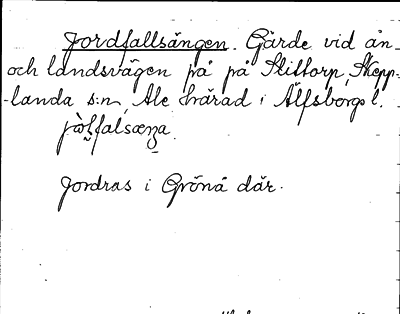 Jordfallsängen. Gärde vid ån
och landsvägen på på Slittorp, Skepp-
-landa s:n, Ale härad i Älfsborgs l.
Jordras i Gröna där.